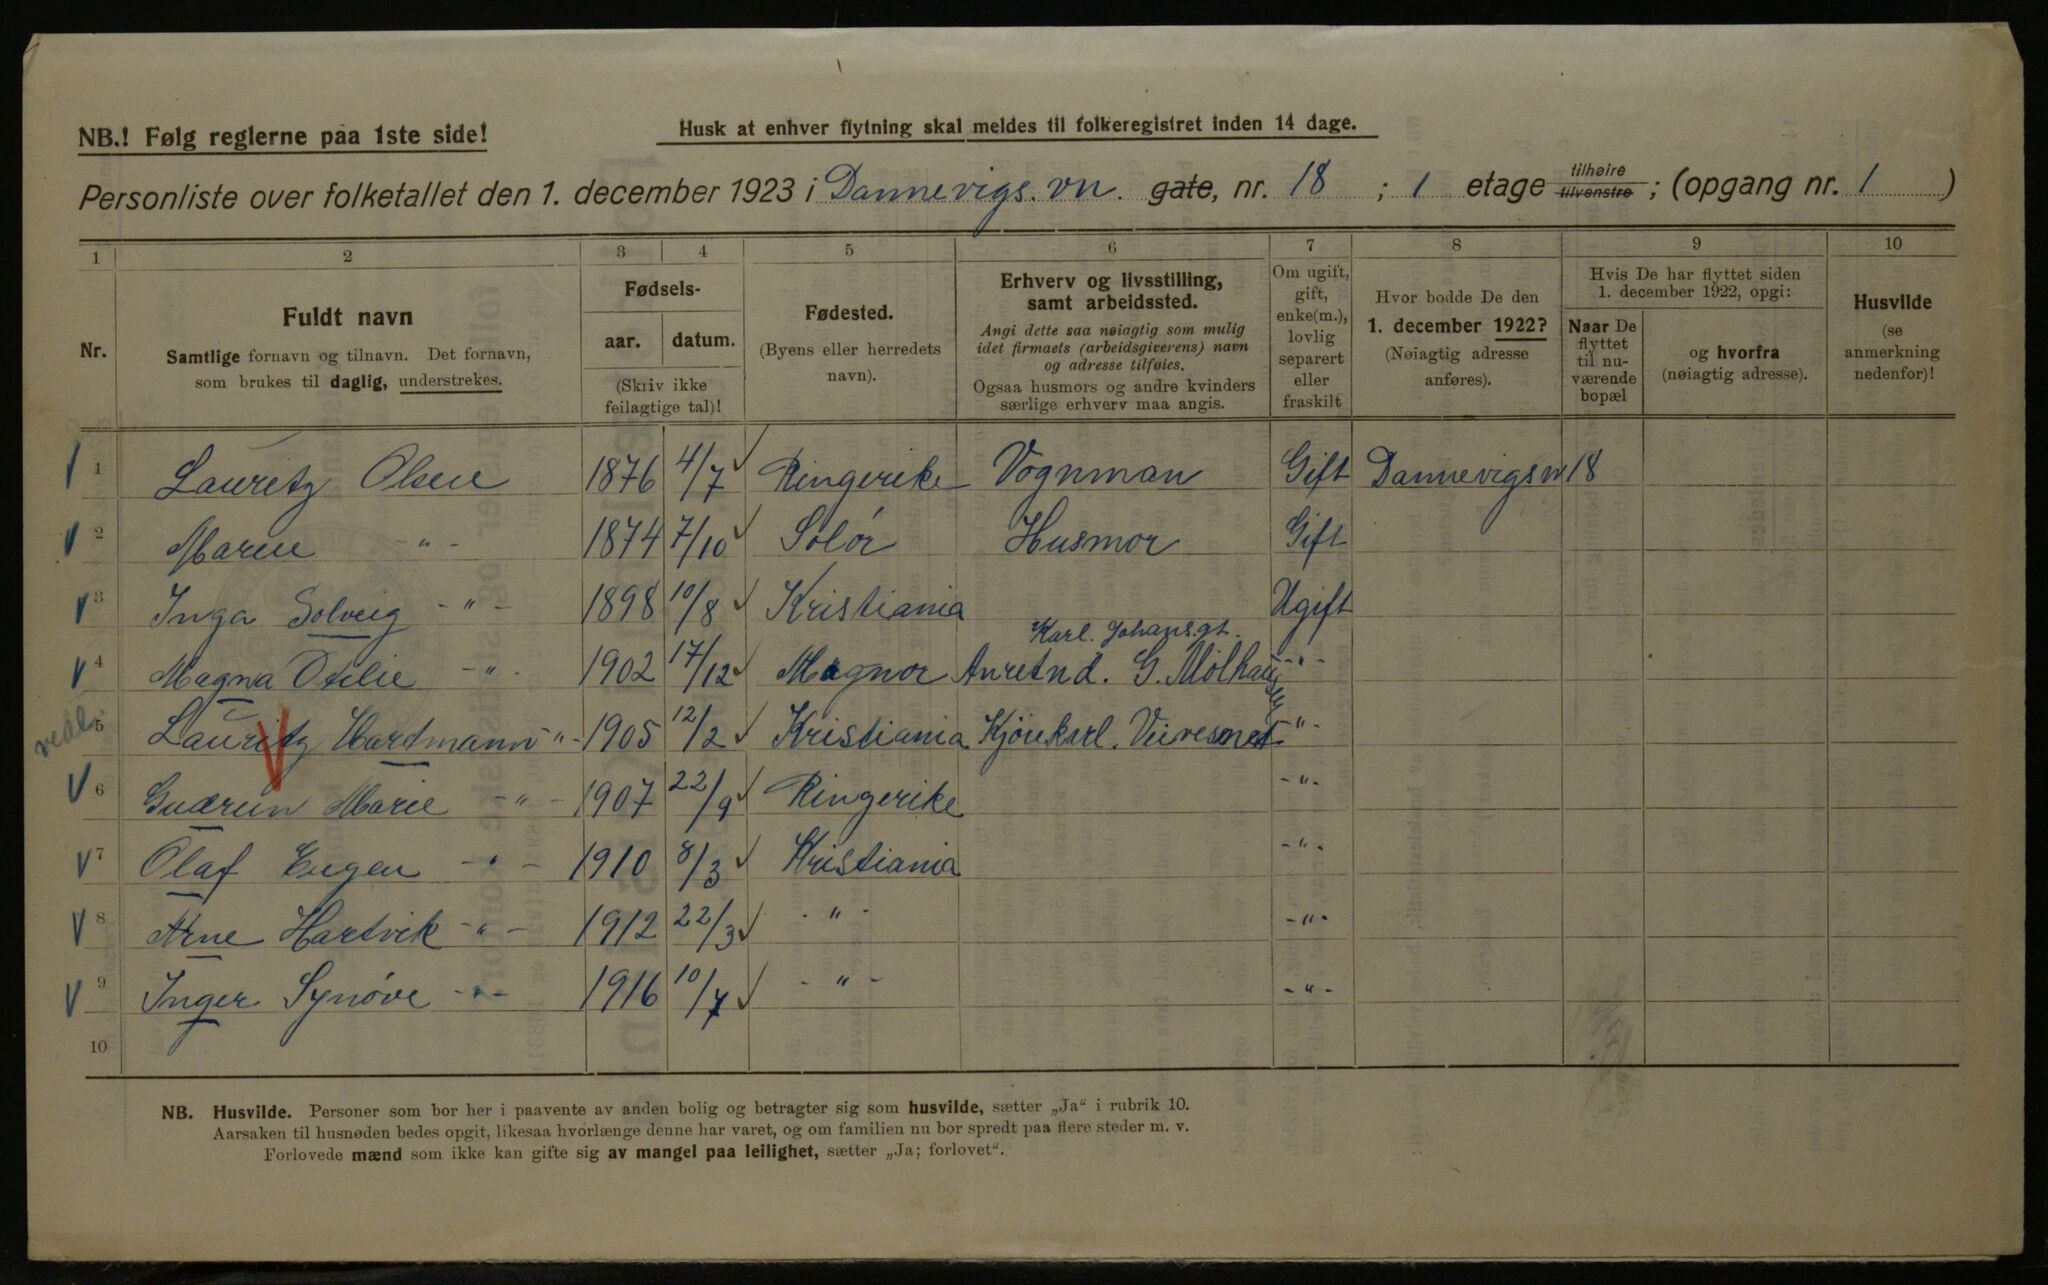 NB.! Følg reglerne paa 1ste side!
Husk at enhver flytning skal meldes til folkeregistret inden 14 dage.
Personliste over folketallet den 1. december 1923 i Dannevigs.vn. gate, nr. 18 ; 1 etage tilhøire tilvenstre ; (opgang nr. 1 )
1 2 3 4 5 6 7 8 9 10
Nr.
Fuldt navn
Samtlige fornavn og tilnavn. Det fornavn,
som brukes til daglig, understrekes.
Fødsels-
aar. datum.
(Skriv ikke
feilagtige tal)!
Fødested.
(Byens eller herredets
navn).
Erhverv og livsstilling,
samt arbeidssted.
Angi dette saa nøiagtig som mulig
idet firmaets (arbeidsgiverens) navn
og adresse tilføies.
Ogsaa husmors og andre kvinders
særlige erhverv maa angis.
Om ugift,
gift,
enke(m.),
lovlig
separert
eller
fraskilt
Hvor bodde De den
1. december 1922?
(Nøiagtig adresse
anføres).
Hvis De har flyttet siden
1. december 1922, opgi:
Naar De
flyttet
til nu-
værende
bopæl
og hvorfra
(nøiagtig adresse).
Husvilde
(se
anmerkning
nedenfor)!
1 Lauritz Olsen 1876 4/7 Ringerike Vognman Gift Dannevigsv 18
2 Maren -"- 1874 7/10 Solør Husmor Gift
3 Inga Solveig -"- 1898 10/8 Kristiania Ugift
Karl. Johansgt.
4 Magna Otilie -"- 1902 17/12 Magnor Anretnd. G. Mølhaus -"-
5 Lauritz Hartmann -"- 1905 12/2 Kristiania Kjørekarl. -"-
6 Gudrun Marie -"- 1907 22/9 Ringerike -"-
7 Olaf Eugen -"- 1910 8/3 Kristiania -"-
8 Arne Hartvik -"- 1912 22/3 -"- -"-
9 Inger Synøve -"- 1916 10/7 -"- -"-
10
NB. Husvilde. Personer som bor her i paavente av anden bolig og betragter sig som husvilde, sætter „Ja" i rubrik 10.
Aarsaken til husnøden bedes opgit, likesaa hvorlænge denne har varet, og om familien nu bor spredt paa flere steder m. v.
Forlovede mænd som ikke kan gifte sig av mangel paa leilighet, sætter „Ja; forlovet".